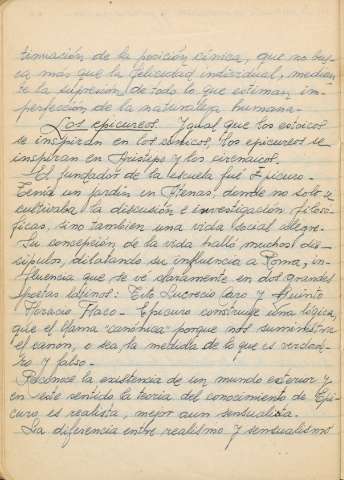 tinuación de la posición cínica, que no bus-
ca más que la felicidad individual, median-
te la supresión, de todo lo que estiman im-
perfección de la naturaleza humana.-
Los epicureos. Ygual que los estoicos
se inspiran en los cínicos, los epicureos se
inspiran en Aristipo y los cirenaicos.
El fundador de la escuela fué Epicuro.-
Tenía un jardín en Atenas, donde no solo se
cultivaba la discusión e investigación filosó-
ficas, sino tambien una vida social alegre.-
Su concepción de la vida halló muchos dis-
cípulos, dilatando su influencia a Roma, in-
fluencia que se vé claramente en dos grandes
poetas latinos: Tito Lucrecio Caro y Quinto
Horacio Flaco.- Epicuro construye una lógica,
que el llama "canónica" porque nos suministra
el canon, o sea, la medida de lo que es verdade-
ro y falso.-
Reconoce la existencia de un mundo exterior y
en este sentido la teoria del conocimiento de Epi-
curo es realista, mejor aun sensualista.
La diferencia entre realismo y sensualismo